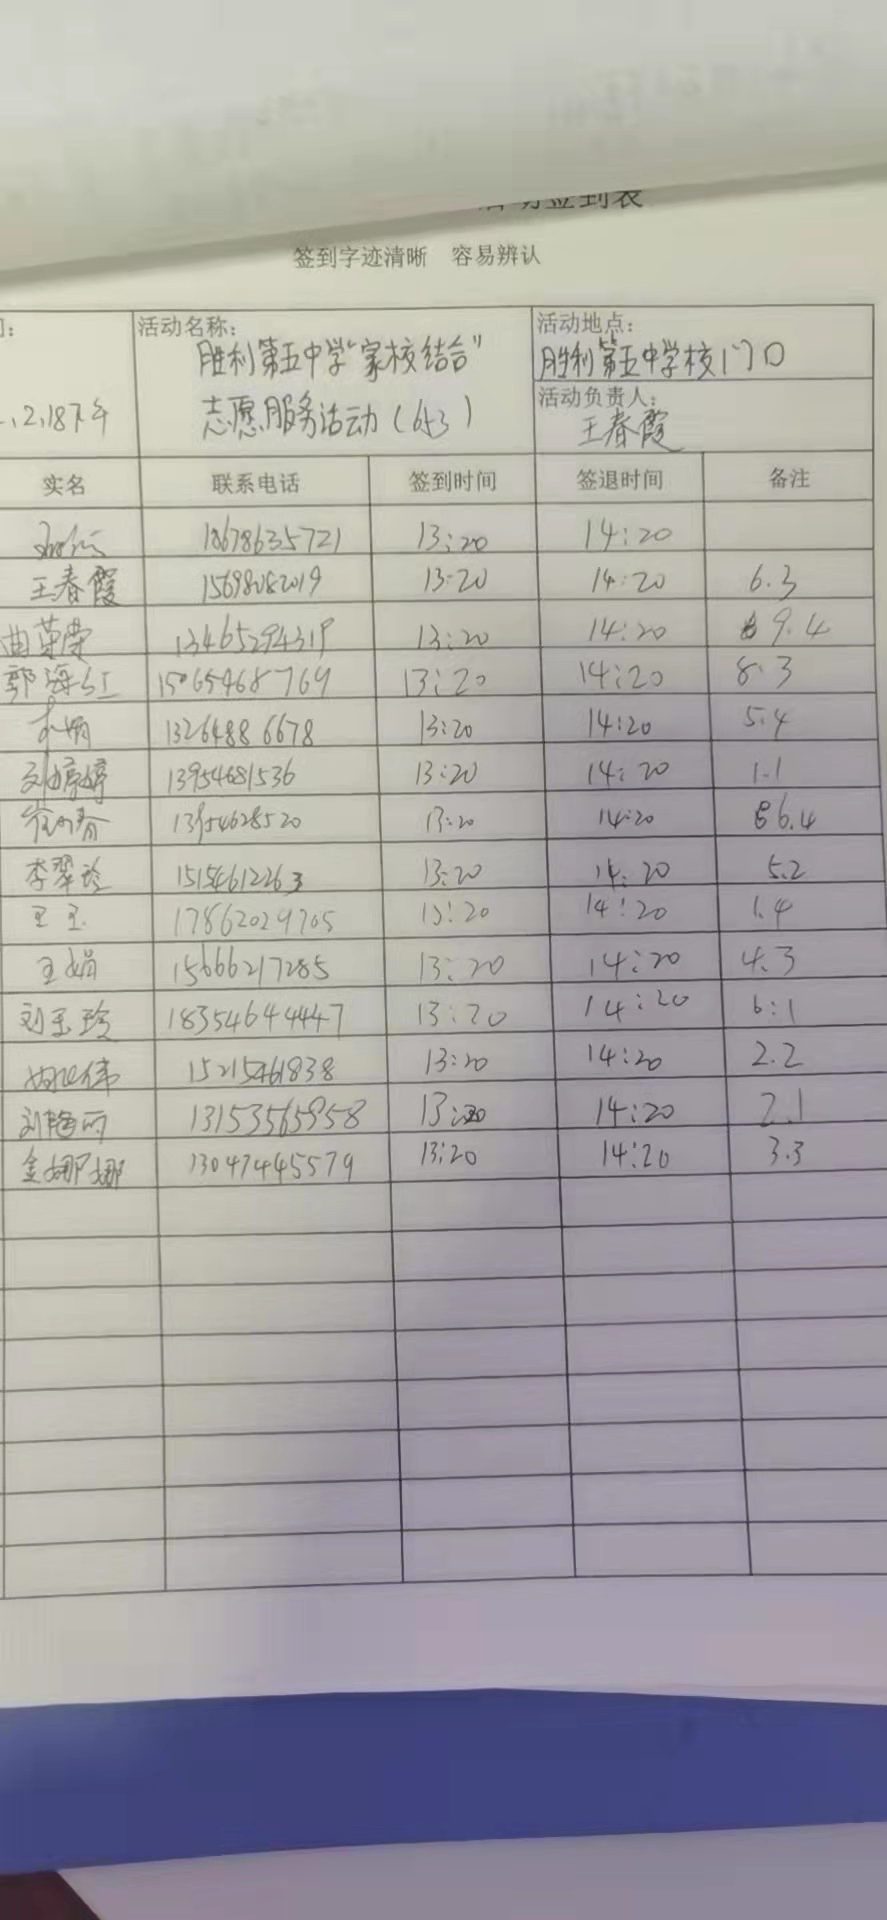 活动签到表
签到字迹清晰 容易辨认
活动名称: 胜利第五中学"家校结合"
志愿服务活动(6.3)
活动地点:
胜利第五中学校门口
活动负责人:
王春霞
2.18下午
实名 联系电话 签到时间 签退时间 备注
18678635721 13:20 14:20
王春霞 15698082019 13:20 14:20 6.3
曲英荣 13465294319 13:20 14:20 9.4
郭海红 15065468769 13:20 14:20 8.3
13264886678 13:20 14:20 5.4
刘婷婷 13954681536 13:20 14:20 1.1
13954628520 13:20 14:20 6.4
李翠玲 15154612263 13:20 14:20 5.2
王玉 17862029705 13:20 14:20 1.4
王娟 15666217285 13:20 14:20 4.3
刘玉玲 18354644447 13:20 14:20 6:1
15215461838 13:20 14:20 2.2
刘艳丽 13153565958 13:20 14:20 2.1
金娜娜 13047445579 13:20 14:20 3.3